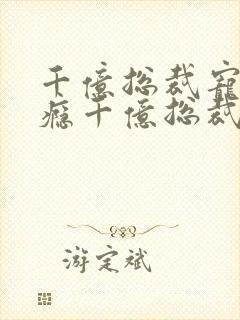 千億總裁寵
癮千億總裁
游定斌